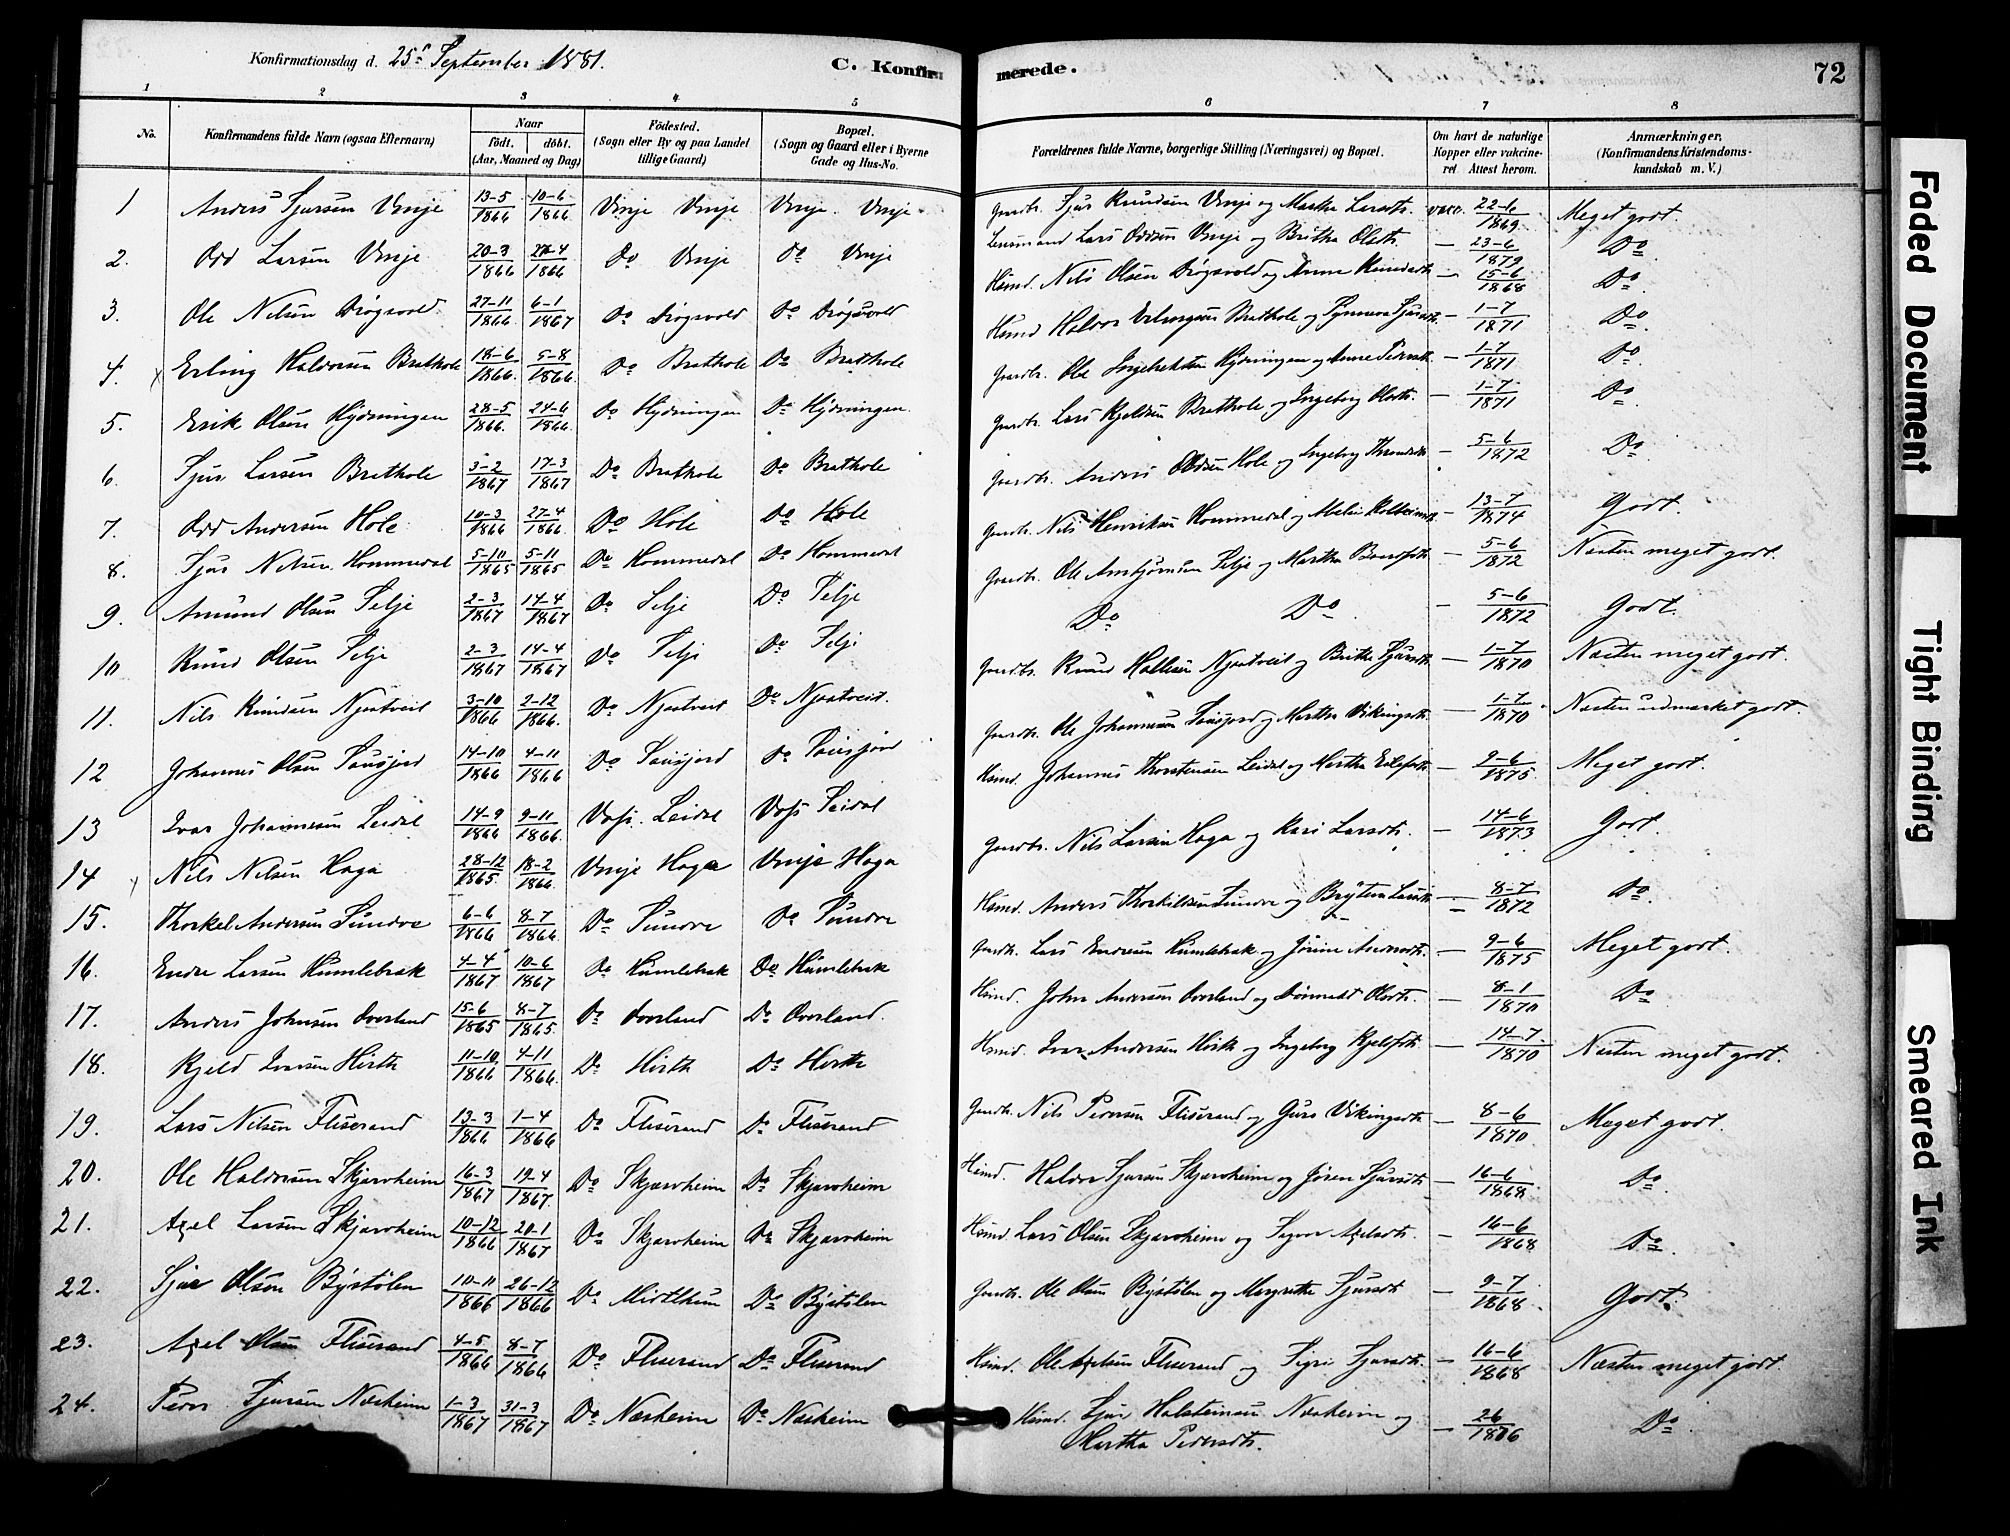 Konfirmationsdag d. 25de September 1881.
C. Konfirmerede.
72
1 2 3 4 5 6 7 8
No.
Konfirmandens fulde Navn (ogsaa Efternavn)
Naar
født. døbt.
(Aar, Maaned og Dag)
Fødested.
(Sogn eller By og paa Landet
tillige Gaard)
Bopæl.
(Sogn og Gaard eller i Byerne
Gade og Hus-No.
Forældrenes fulde Navne, borgerlige Stilling (Næringsvei) og Bopæl.
Om havt de naturlige
Kopper eller vakcine-
ret Attest herom.
Anmærkninger.
(Konfirmandens Kristendoms-
kundskab m. V.)
1 Anders Sjursen Vinje 13-5 1866 10-6 1866 Vinje Vinje Vinje Vinje Gaardbr. Sjur Knudsen Vinje og Martha Larsdtr. vacc. 22-6 1869 Meget godt.
2. Odd Larsen Vinje 20-3 1866 4 1866 Do Vinje Do Vinje Lensmand Lars Oddsen Vinje og Britha Olsdtr. — 23-6 1879 Do
3. Ole Nilsen Drøgsvold 27-11 1866 6-1 1867 Do Drøgsvold Do Drøgsvold Husmd. Nils Olsen Drøgsvold og Anna Knudsdtr. — 15-6 1868 Do
4. Erling Haldorsen Brethole 18-6 1866 5-8 1866 Do Brethole Do Brethole Husmd. Haldor Erlingsen Brethole og Synneva Sjursdtr. — 1-7 1871 Do
5. Erik Olsen Hydningen 28-5 1866 24-6 1866 Do Hydningen Do Hydningen. Gaardbr. Ole Ingebrektsen Hydningen og Anne Pedersdtr. — 1-7 1871 Do
6. Sjur Larsen Brethole 3-2 1867 17-3 1867 Do Brethole Do Brethole Gaardbr. Lars Kjeldsen Brethole og Ingeborg Olsdtr. — 1-7 1871 Do
7. Odd Andersen Hole 10-3 1866 27-4 1866 Do Hole Do Hole Gaardbr. Anders Oddsen Hole og Ingeborg — 5-6 1872 Do
8. Sjur Nilsen Hommedal 5-10 1865 5-11 1865 Do Hommedal Do Hommedal Gaardbr. Nils Henriksen Hommedal og — 13-7 1874 Godt.
9. Amund Olsen Selje 2-3 1867 14-4 1867 Do Selje Do Selje Gaardbr. Ole Arnbjørnsen Selje og Martha — 5-6 1872 Næsten meget godt.
10 Knud Olsen Selje 2-3 1867 14-4 1867 Do Selje Do Selje Do Do — 5-6 1872 Godt.
11. Nils Knudsen Njaatveit 3-10 1866 2-12 1866 Do Njaatveit Do Njaatveit. Gaardbr. Knud Njaatveit og Britha Sjursdtr. — 1-7 1870 Næsten meget godt.
12 Johannes Olsen Saugjord 14-10 1866 4-11 1866 Do Saugjord Do Saugjord Gaardbr. Ole Johannesen Saugjord og Martha Vikingsdtr. — 1-7 1870 Næsten udmærket godt.
13 Ivar Johannesen Leidal 14-9 1866 9-11 1866 Voss Leidal Voss Leidal Husmd. Johannes Thorstensen Leidal og Martha — 2-6 1875 Meget godt.
14 Nils Nilsen Haga 28-12 1865 18-2 1866 Vinje Haga Vinje Haga Gaardbr. Nils Larsen Haga og Kari Larsdtr. — 14-6 1873 Godt.
15. Thorkel Andersen Sundve 6-6 1866 8-7 1866 Do Sundve Do Sundve Husmd. Anders Thorkildsen Sundve og — 8-7 1872 Do
16. Endre Larsen Humlebrek 4-4 1867 10-6 1867 Do Humlebrek Do Humlebrek Gaardbr. Lars Endresen Humlebrek og Andersdtr. — 9-6 1875 Meget godt.
17. Anders Johnsen Overland 15-6 1865 8-7 1865 Do Overland Do Overland. Husmd. John Andersen Overland og Olsdtr. — 8-1 1870 Do
18. Kjeld Ivarsen Hirth 11-10 1866 4-11 1866 Do Hirth Do Hirth Husmd. Ivar Andersen Hirth og Ingeborg — 14-7 1870 Næsten meget godt.
19. Lars Nilsen Fliserand 13-3 1866 1-4 1866 Do Fliserand Do Fliserand Gaardbr. Nils Pedersen Fliserand og Guro Vikingsdtr. — 8-6 1870 Meget godt.
20. Ole Haldorsen Skjerveheim 16-3 1867 19-4 1867 Do Skjerveheim Do Skjerveheim Husmd. Haldor Sjursen Skjerveheim og Jøren Sjursdtr. — 16-6 1868 Do
21. Axel Larsen Skjerveheim 10-12 1866 20-1 1867 Do Skjerveheim Do Skjerveheim Husmd. Lars Olsen Skjerveheim og Axelsdtr. — 16-6 1868 Do
22. Sjur Olsen Bystølen 10-11 1866 26-12 1866 Do Do Bystølen Gaardbr. Ole Olsen Bystølen og Margrethe Sjursdtr. — 9-7 1868 Godt.
23. Axel Olsen Fliserand 4-5 1866 8-7 1866 Do Fliserand Do Fliserand Husmd. Ole Axelsen Fliserand og Sigri Sjursdtr. — 16-6 1868 Næsten meget godt.
24. Peder Sjursen Næsheim 1-3 1867 31-3 1867 Do Næsheim Do Næsheim Husmd. Sjur Holsteinsen Næsheim og — 2-6 1876 Do
Martha Pedersdtr.
Faded Document
Tight Binding
Smeared Ink